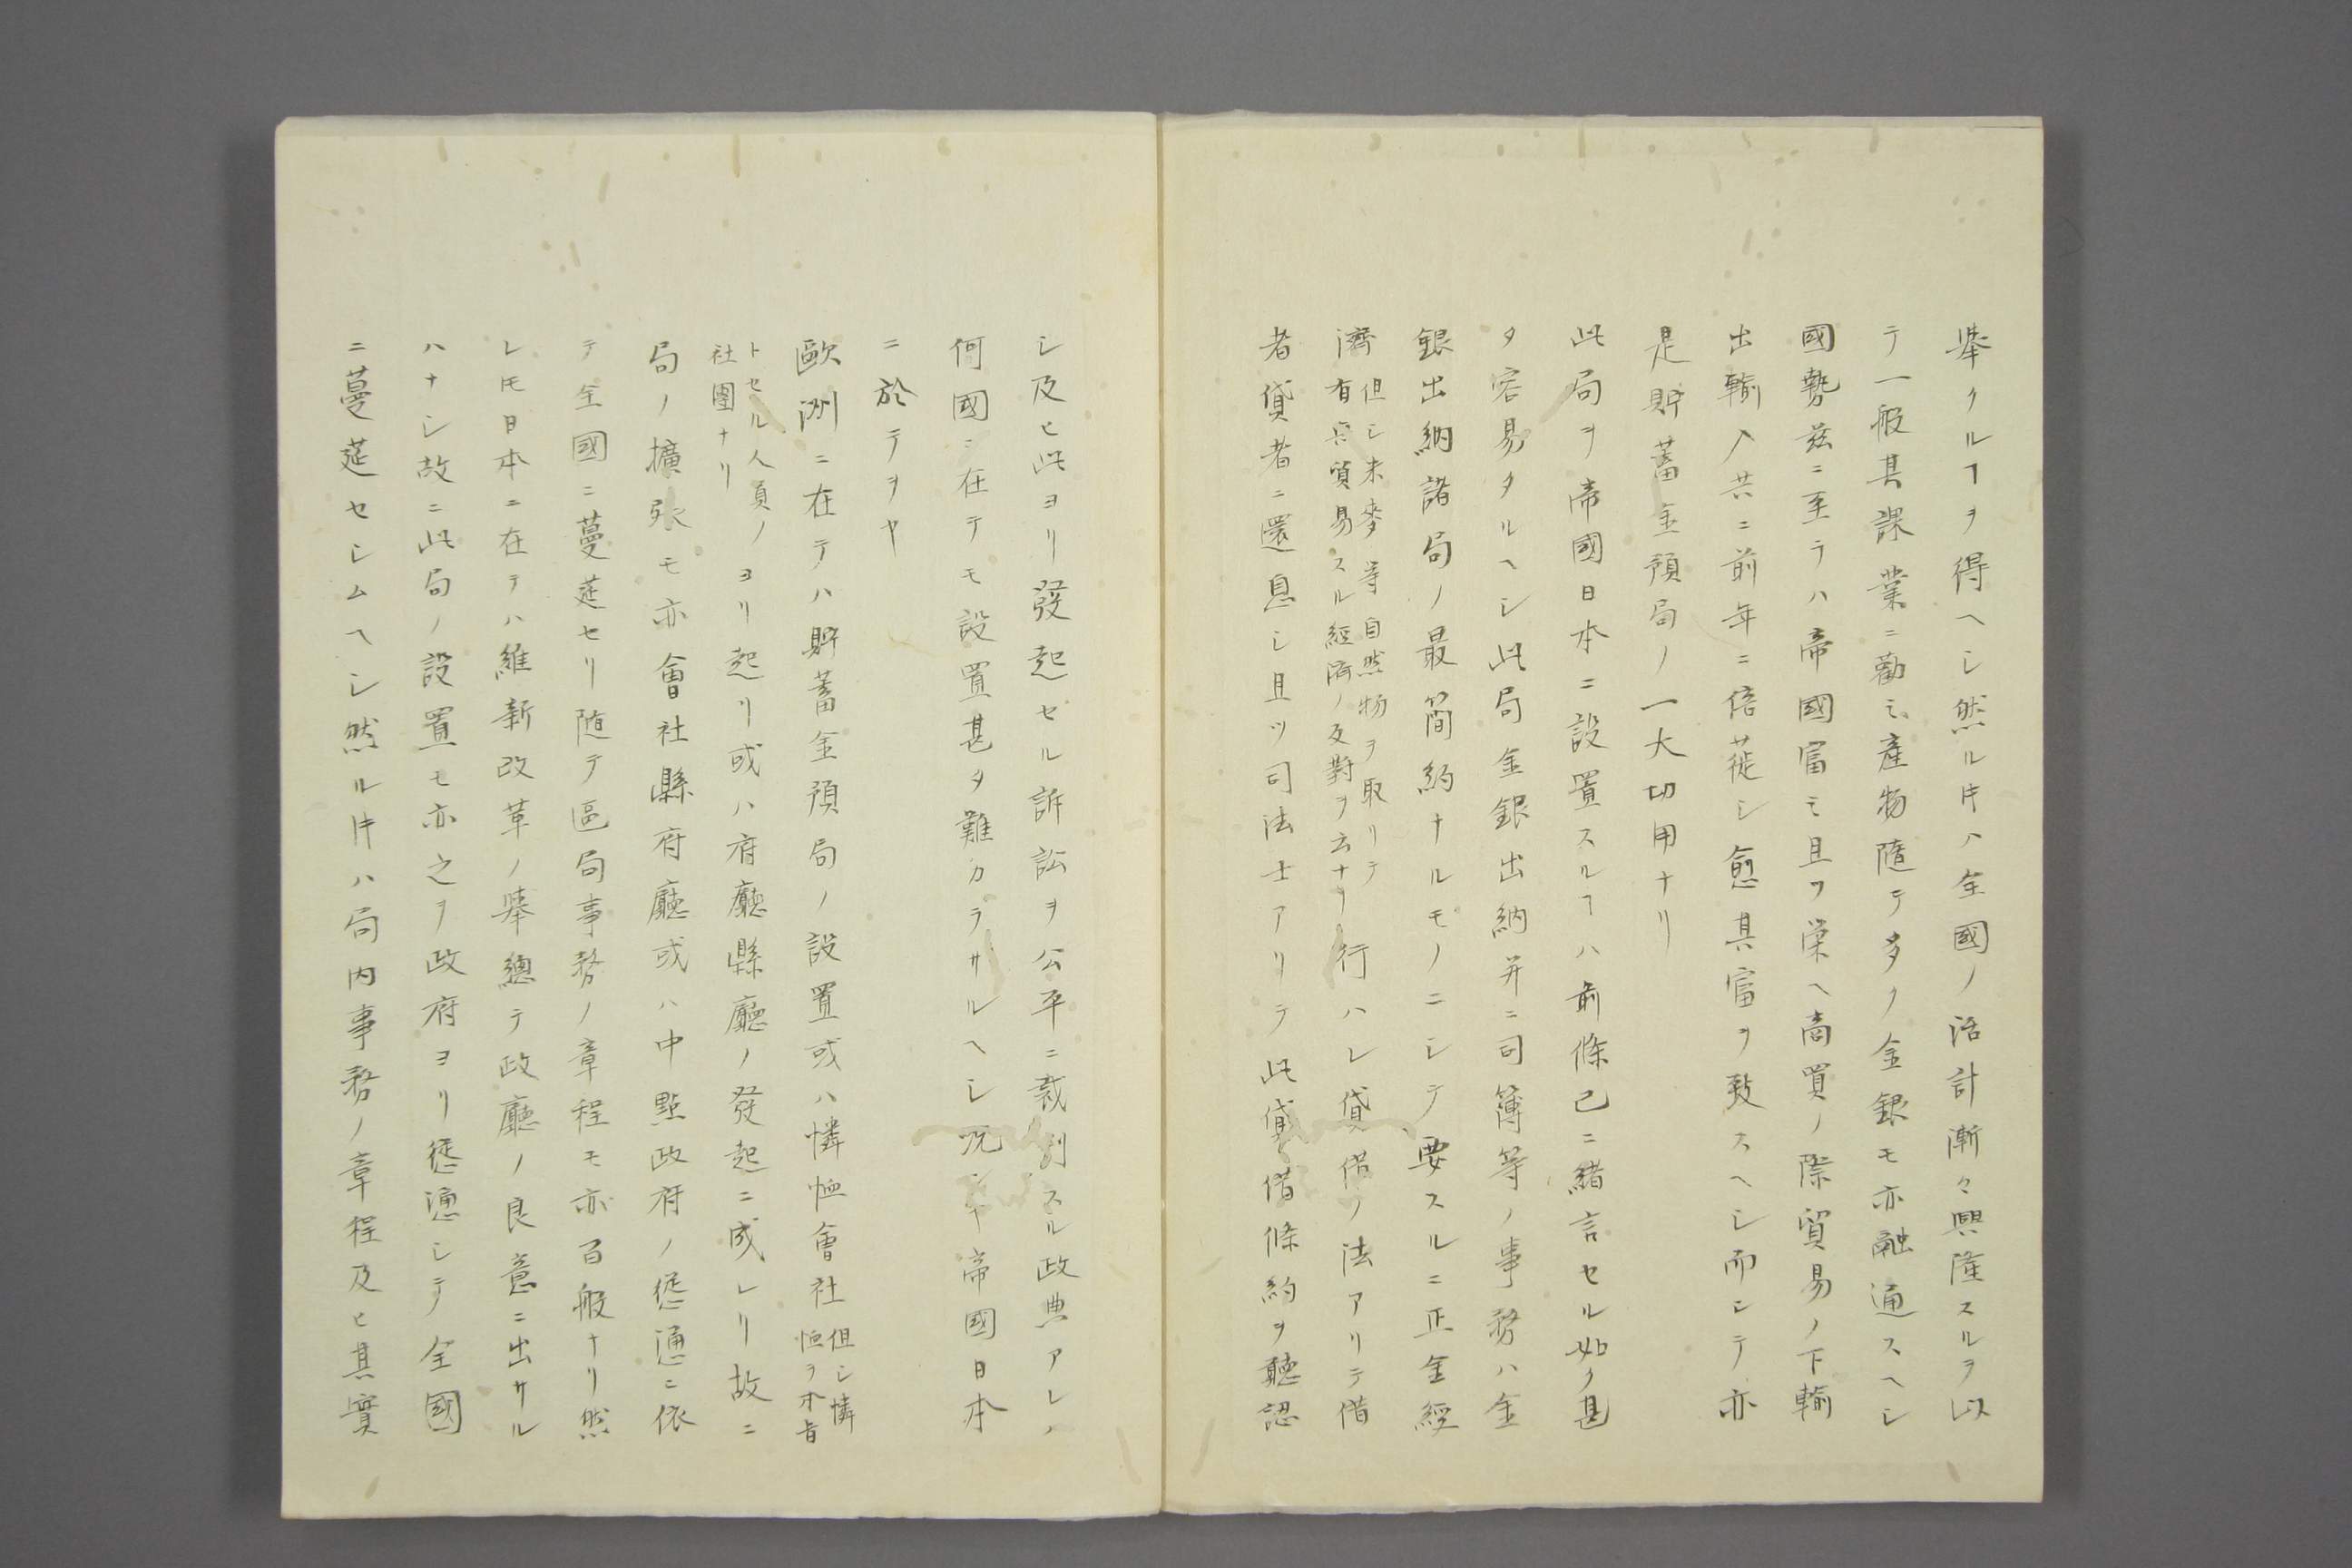 擧クルヿヲ得ヘシ然ル片ハ全國ノ活計漸々興隆スルヲ以
テ一般其課業ニ勸ミ產物隨テ多ク金銀モ亦融通スヘシ
國勢茲ニ至テハ帝國富ミ且ツ栄ヘ商買ノ際貿易ノ下輸
出輸入共ニ前年ニ倍蓰シ愈其富ヲ致スヘシ而シテ亦
是貯蓄金預局ノ一大切用ナリ
此局ヲ帝國日本ニ設置スルヿハ前條已ニ緒言セル如ク甚
タ容易タルヘシ此局金銀出納并ニ司簿等ノ事務ハ金
銀出納諸局ノ最簡約ナルモノニシテ要スルニ正金經
濟但シ未麥等自然物ヲ取リテ有無貿易スル經済ノ反對ヲ云ナリ行ハレ貸借ノ法アリテ借
者貸者ニ還息シ且ツ司法士アリテ此貸借條約ヲ聽認
シ及ヒ此ヨリ發起セル訴訟ヲ公平ニ裁判スル政典アレハ
何國ニ在テモ設置甚タ難カラサルヘシ况ンヤ帝國日本
ニ於テヲヤ
歐洲ニ在テハ貯蓄金預局ノ設置或ハ憐恤會社但シ憐恤ヲ本旨
トセル人員ノ社團ナリヨリ起リ或ハ府廳縣廳ノ發起ニ成レリ故ニ
局ノ擴張モ亦會社縣府廳或ハ中點政府ノ慫慂ニ依
テ全國ニ蔓莚セリ随テ區局事務ノ章程モ亦百般ナリ然
レ𪜈日本ニ在テハ維新改革ノ擧總テ政廳ノ良意ニ出サル
ハナシ故ニ此局ノ設置モ亦之ヲ政府ヨリ慫慂シテ全國
ニ蔓莚セシムヘシ然ル片ハ局内事務ノ章程及ヒ其實